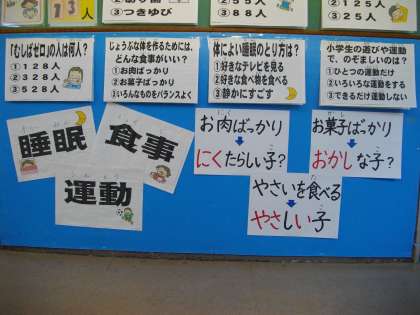 13人
②つきゆび
③88人
②112人
③125人
「むしばゼロ」の人は何人?
①128人
②328人
③528人
じょうぶな体を作るためには、
どんな食事がいい?
①お肉ばっかり
②お菓子ばっかり
③いろんなものをバランスよく
体によい睡眠のとり方は?
①好きなテレビを見る
②好きな食べ物を食べる
③静かにすごす
小学生の遊びや運動
で、のぞましいのは?
①ひとつの運動だけ
②いろいろな運動をする
③できるだけ運動しない
睡眠
食事
運動
お肉ばっかり
にくたらしい子?
お菓子ばっかり
おかしな子?
やさいを食べる
やさしい子